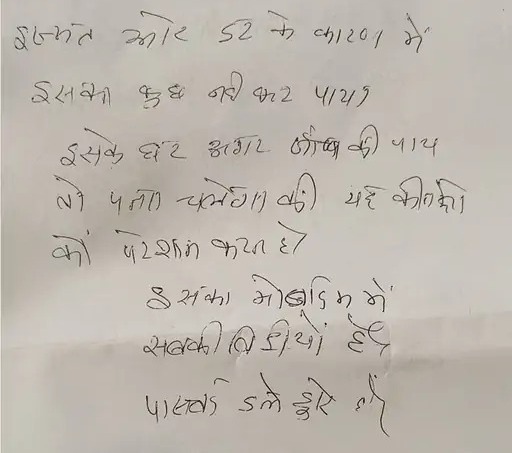 इज्जत और डर के कारण में
इसका कुछ नही कर पाया
इसके घर अगर जाँच की पाय
तो पता चलेगा की यह कीतनो
को परेशान करता है
इसका मोबाईल में
सबकी विडीयों है
पासवर्ड डले हुरे हैं